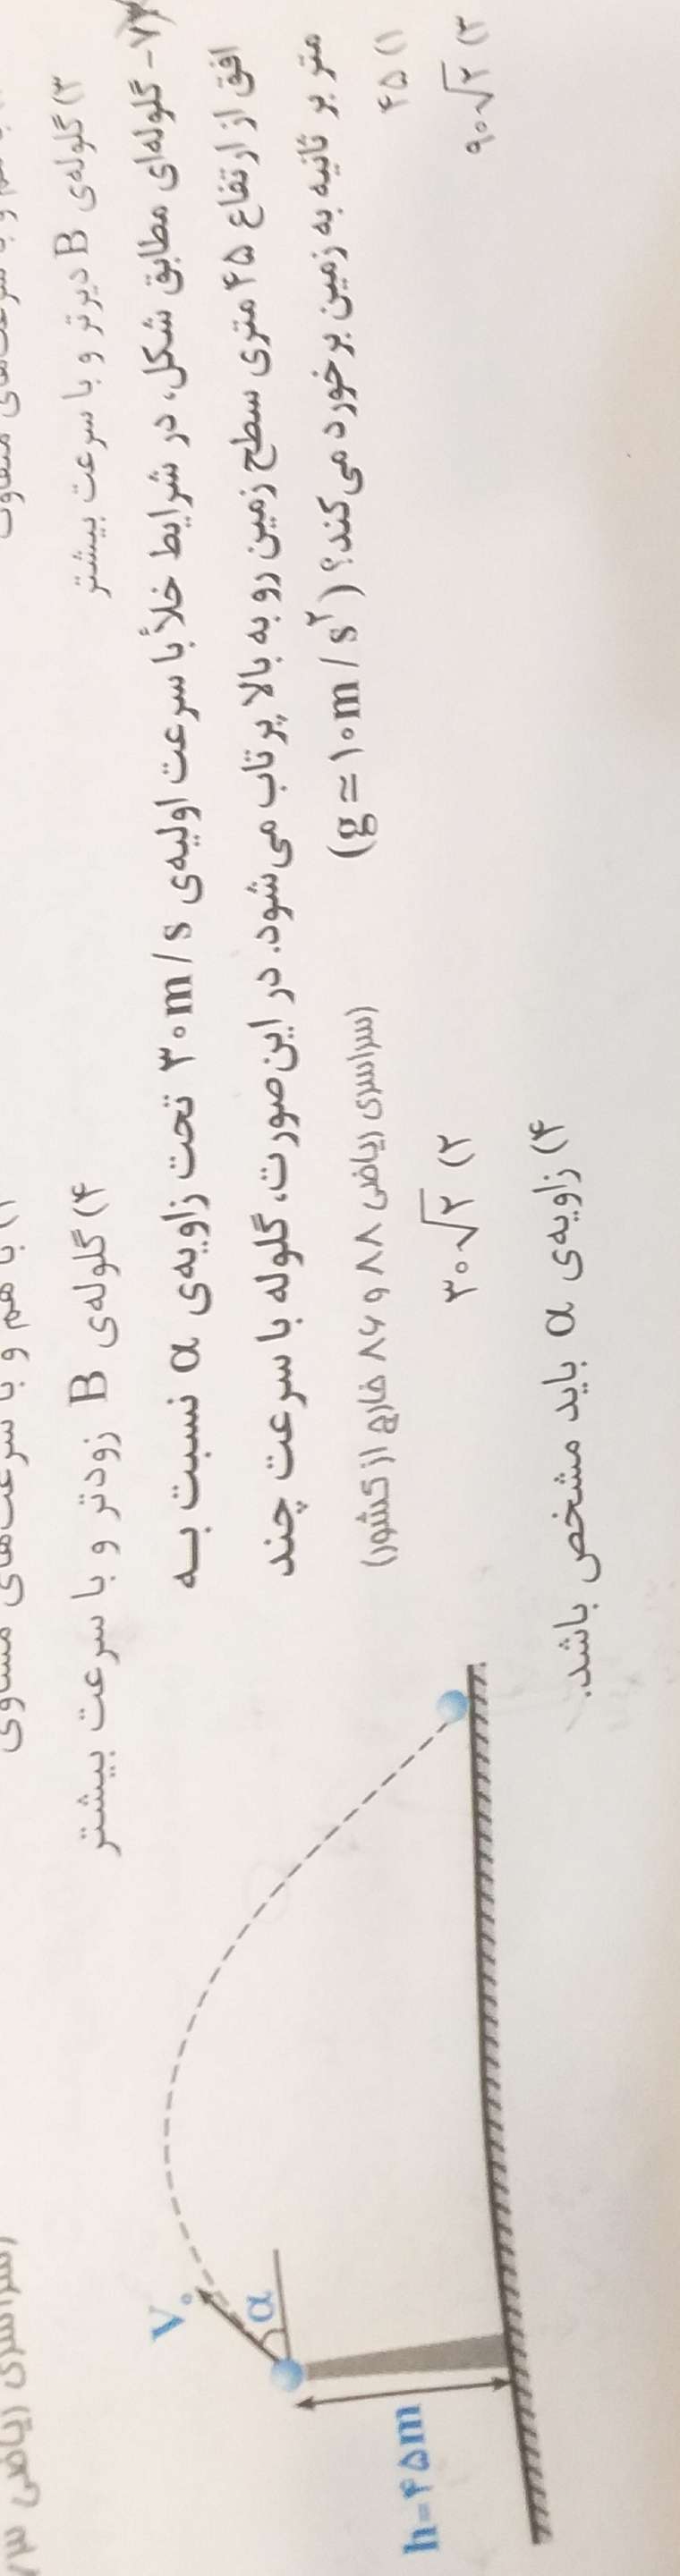 ۳) گلوله‌ی B دیرتر و با سرعت بیشتر
۴) گلوله‌ی B زودتر و با سرعت بیشتر
۷۳- گلوله‌ای مطابق شکل، در شرایط خلأ با سرعت اولیه‌ی ۳۰m/s تحت زاویه‌ی α نسبت به
افق از ارتفاع ۴۵ متری سطح زمین رو به بالا پرتاب می‌شود. در این صورت، گلوله با سرعت چند
متر بر ثانیه به زمین برخورد می‌کند؟ (g≃۱۰m/s²)
(سراسری ریاضی ۸۸ و ۸۶ خارج از کشور)
۱) ۴۵
۲) ۳۰√۲
۳) ۹۰√۲
۴) زاویه‌ی α باید مشخص باشد.
V₀
α
h=۴۵m